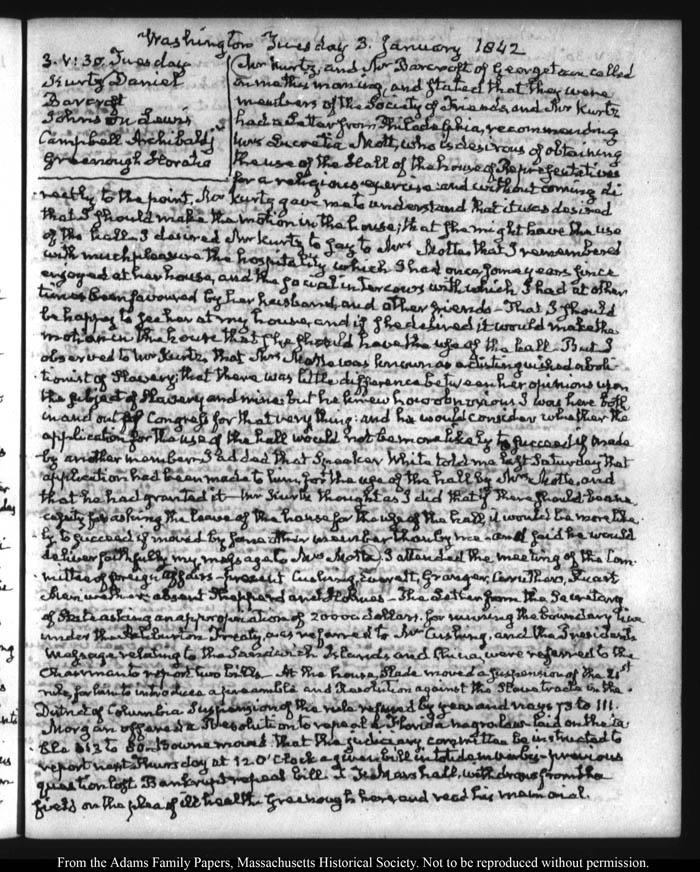 Washington Tuesday 3. January 1842
3. V: 30. Tuesday
Kurtz Daniel
Barcroft
Johnson Lewis
Campbell Archibald
Greenough Horatio
Mr Kurtz, and Mr Barcroft of Georgetown called
on me this morning, and stated that they were
members of the Society of Friends, and Mr Kurtz
had a Letter from Philadelphia, recommending
Mrs Lucretia Mott, who is desirous of obtaining
the use of the Hall of the house of Representatives
for a religious exercise and without coming di
rectly to the point, Mr Kurtz gave me to understand that it was desired
that I should make the motion in the house, that she might have the use
of the hall. I desired Mr Kurtz to say to Mrs Motte, that I remembered
with much pleasure the hospitality which I had once, some years since
enjoyed at her house, and the social intercourse with which I had at other
times been favoured by her husband, and other friends - That I should
be happy to see her at my house, and if she desired it would make the
motion in the house that she should have the use of the hall. But I
observed to Mr Kurtz that Mrs Motte was known as a distinguished aboli
tionist of Slavery; that there was little difference between her opinions upon
the subject of Slavery and mine; but he knew how obnoxious I was here both
in and out of Congress for that very thing: and he would consider whether the
application for the use of the hall would not be more likely to succeed if made
by another member. I added that Speaker White told me last Saturday that
application had been made to him for the use of the hall by Mrs Motte, and
that he had granted it - Mr Kurtz thought as I did that if there should be a ne
cessity for asking the leave of the house for the use of the hall, it would be more like
ly to succeed if moved by some other member than by me - and said he would
deliver faithfully my message to Mrs Motte. I attended the meeting of the Com
mittee of foreign Affairs - present Cushing, Everett, Granger, Caruthers, Stuart
Meriwether absent Shepperd and Holmes - The Letter from the Secretary
of State asking an appropriation of dollars for running the boundary line
under the Treaty, was referred to Mr Cushing, and the President's
Message relating to the Sandwich Islands and China, were referred to the
Chairman to report two bills - At the house, Slade moved a suspension of the 21st
rule, for him to introduce a preamble and Resolution against the Slave trade in the
District of Columbia Suspension of the rule refused by yeas and nays 73 to 111.
Morgan offered a Resolution to repeal a Florida negro law laid on the ta
ble 113 to 80. Bowne moved that the judiciary committee be instructed to
report next Thursday at 12 O'Clock a given bill - previous
question lost Bankrupt repeal bill - T. F. Marshall, withdraws from the
field on the plea of ill health Greenough here and read his memorial.
From the Adams Family Papers, Massachusetts Historical Society. Not to be reproduced without permission.